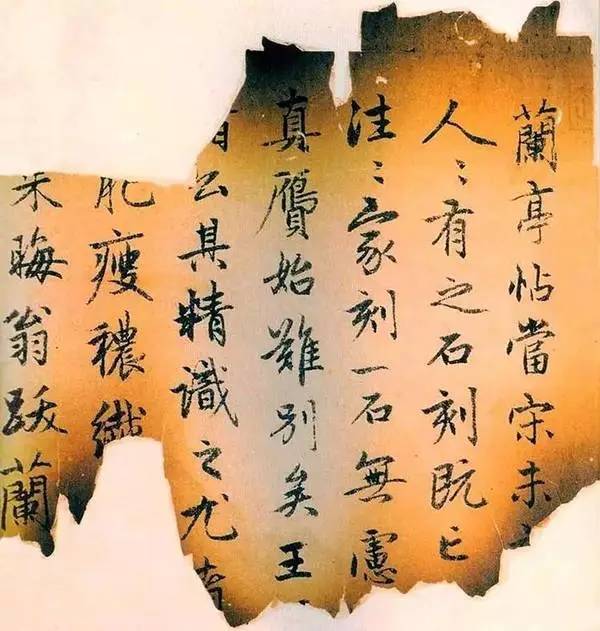 蘭亭帖當宋未
人〻有之石刻既亡
往〻家刻一石無慮
真贗始難別矣王
公其精識之尤者
肥瘦穠纖
朱晦翁跋蘭